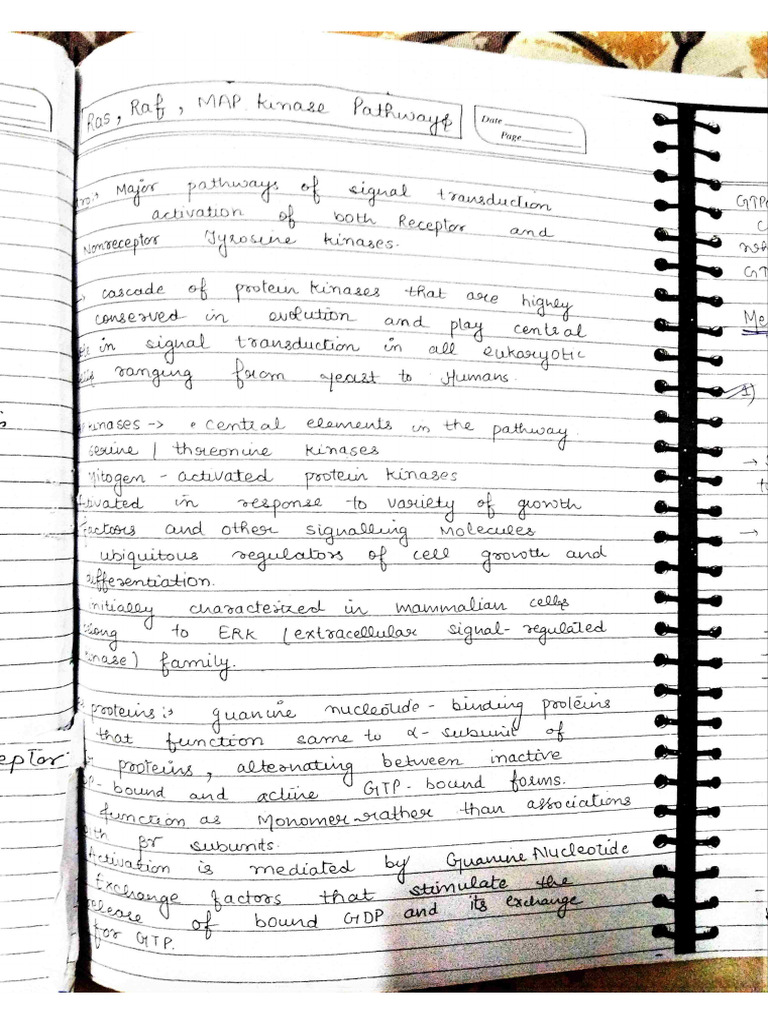 Ras, Raf, MAP kinase Pathways
Date
Page
Major pathways of signal transduction
activation of both Receptor and
Nonreceptor Tyrosine kinases.
cascade of protein kinases that are highly
conserved in evolution and play central
in signal transduction in all eukaryotic
ranging from yeast to Humans.
kinases → • central elements in the pathway
serine / threonine kinases
Mitogen - activated protein kinases
in response to variety of growth
factors and other signalling molecules
ubiquitous regulators of cell growth and
differentiation.
initially characterized in mammalian cells
to ERK (extracellular signal-regulated
kinase) family.
proteins :- guanine nucleotide - binding proteins
that function same to α- subunit of
proteins, alternating between inactive
- bound and active GTP - bound forms.
function as Monomer rather than associations
βr subunits.
Activation is mediated by Guanine Nucleotide
Exchange factors that stimulate the
release of bound GDP and its exchange
for GTP.
eptor
GTP
GT
Me
1)